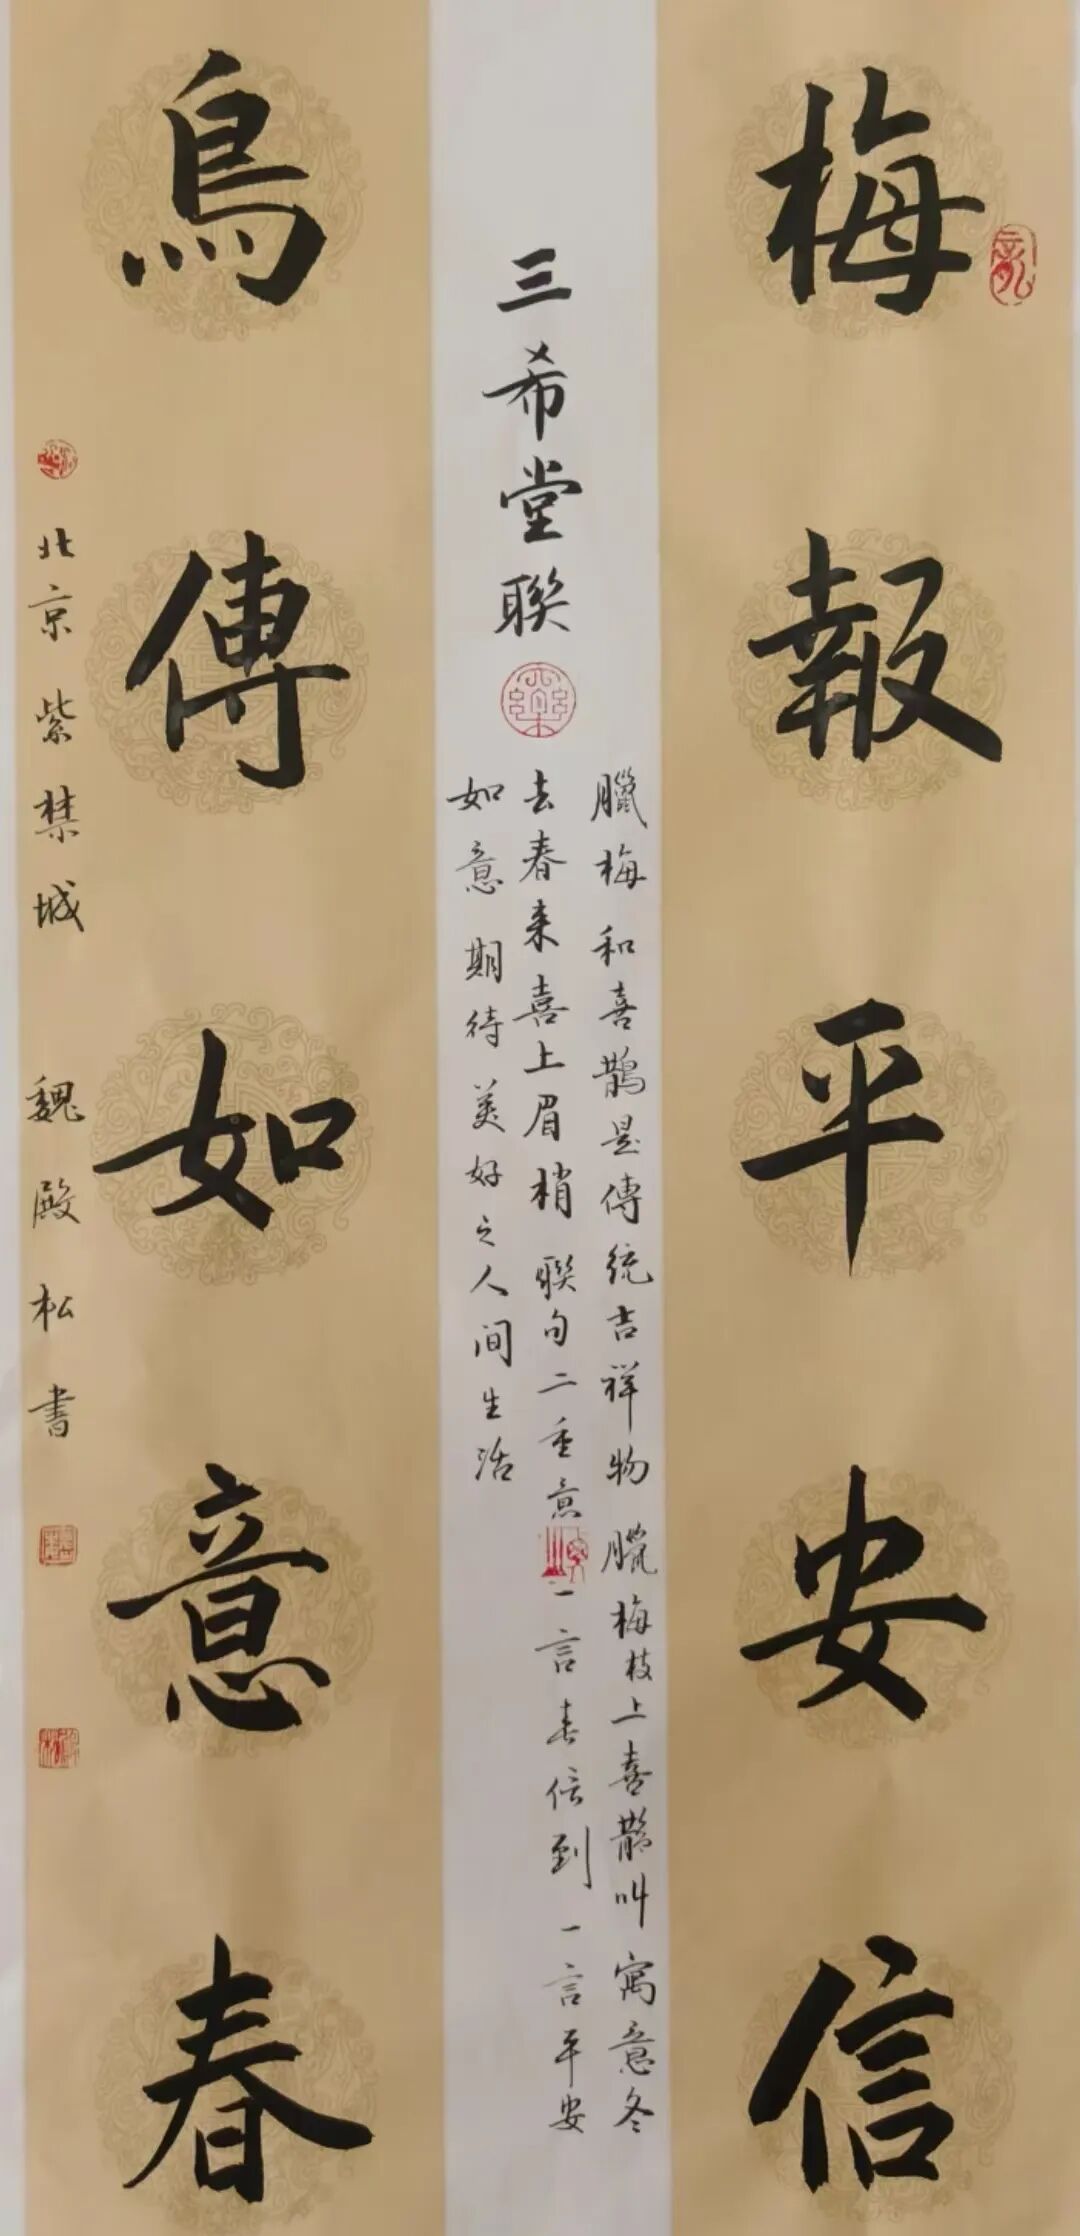 梅報平安信
三希堂聯
臘梅和喜鵲是傳統吉祥物臘梅枝上喜鵲叫寓意冬
去春来喜上眉梢聯句二重意一言春信到一言平安
如意期待美好之人间生活
鳥傳如意春
北京紫禁城魏殿松書